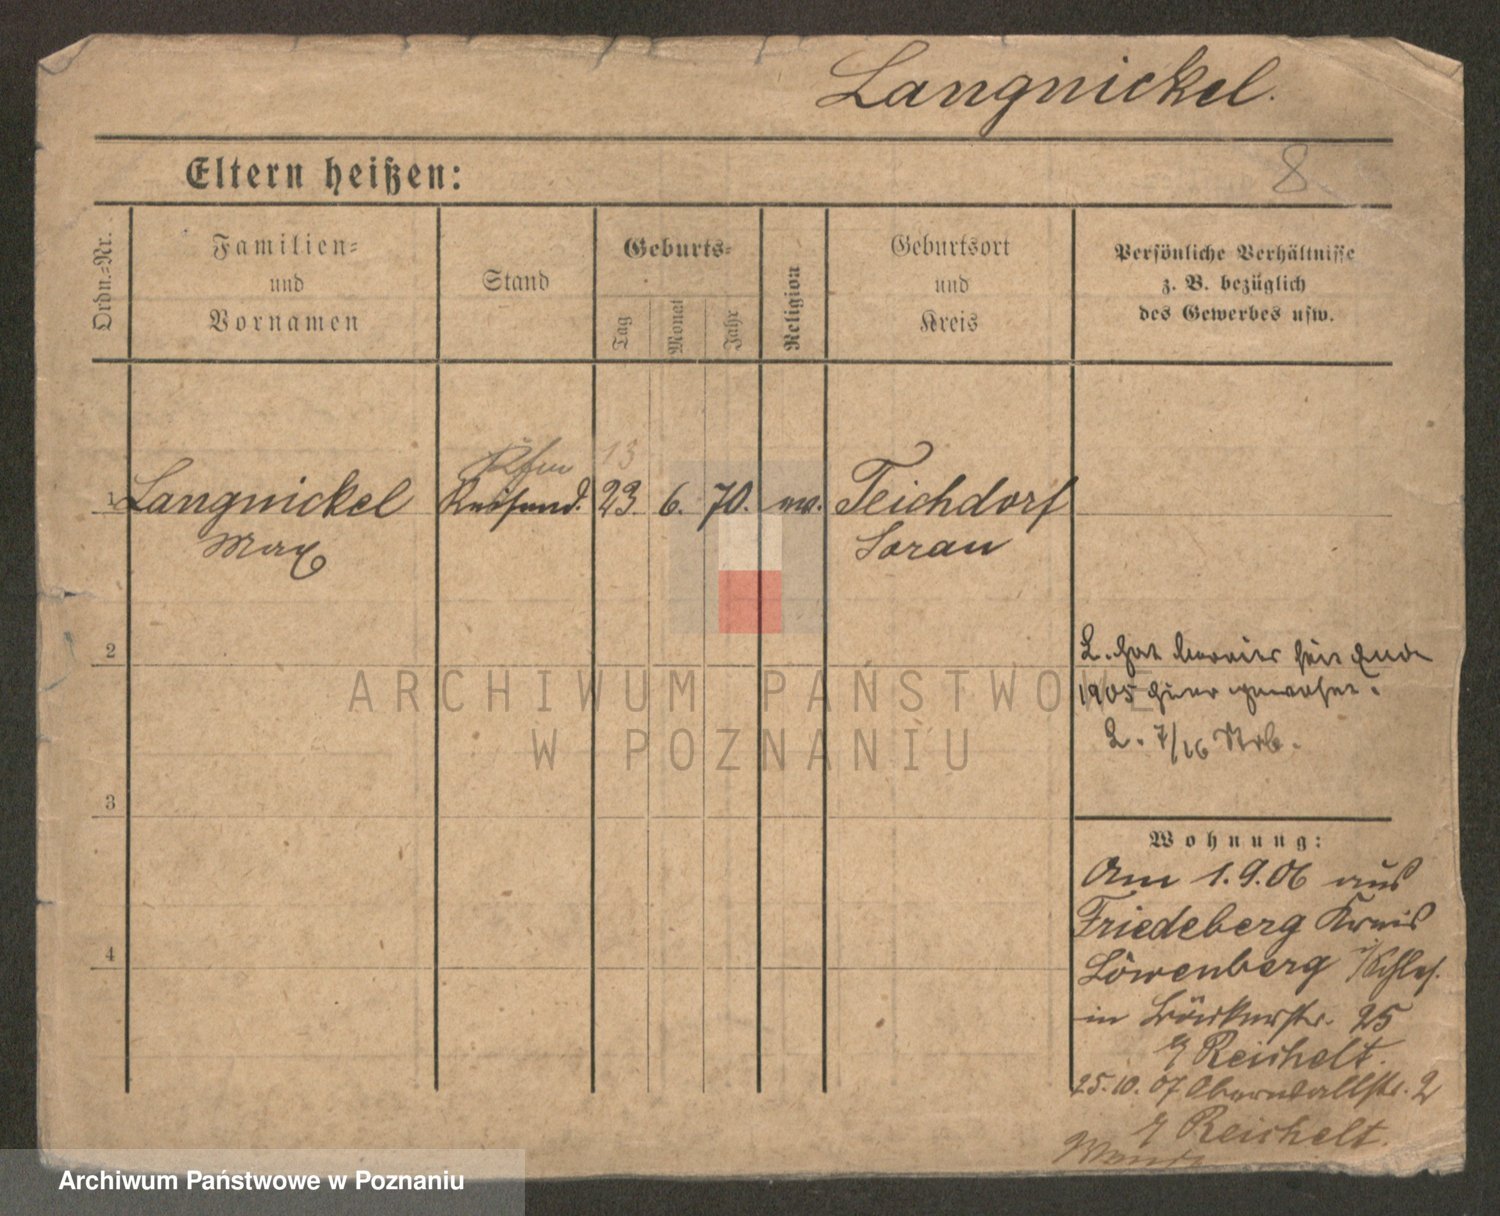 Langnickel.
8
Eltern heißen:
Ordn.=Nr.
Familien=
und
Vornamen
Stand
Geburts=
Tag
Monat
Jahr
Religion
Geburtsort
und
Kreis
Persönliche Verhältnisse
z. B. bezüglich
des Gewerbes usw.
Kfm 13
1 Langnickel Reisend. 23. 6. 70. ev. Teichdorf
Max Sorau
2
L. hat bereits seit Ende
1905 hier gewohnt.
2. 7/16
3
Wohnung:
Am 1.9.06 aus
Friedeberg Kreis
Löwenberg i/Schles.
4
in Bäckerstr. 25
b/ Reichelt.
25.10.07 Oberwallstr. 2
b/ Reichelt.
ARCHIWUM PAŃSTWOWE
W POZNANIU
Archiwum Państwowe w Poznaniu